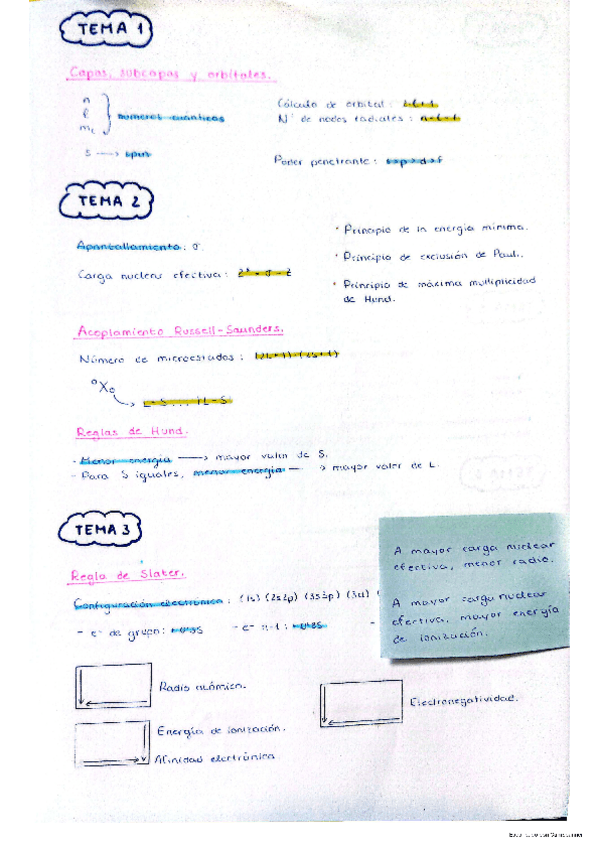 TEMA 1
Capas, subcapas y orbitales.
n
l
ml
números cuánticos
s → spin
Cálculo de orbital: 2l+1
Nº de nodos radiales: n-l-1
Poder penetrante: s>p>d>f
TEMA 2
Apantallamiento: σ.
Carga nuclear efectiva:
· Principio de la energía mínima.
· Principio de exclusión de Pauli.
· Principio de máxima multiplicidad
de Hund.
Acoplamiento Russell-Saunders.
Número de microestados: (2L+1)·(2s+1)
L+S ... |L-S|
Reglas de Hund.
- Menor energía → mayor valor de S.
- Para S iguales, menor energía → mayor valor de L.
TEMA 3
Regla de Slater.
Configuración electrónica: (1s) (2s2p) (3s3p) (3d) (
- e⁻ de grupo: · 0'35
- e⁻ n-1 : · 0'85
-
A mayor carga nuclear
efectiva, menor radio.
A mayor carga nuclear
efectiva, mayor energía
de ionización.
Radio atómico.
Electronegatividad.
Energía de ionización.
Afinidad electrónica